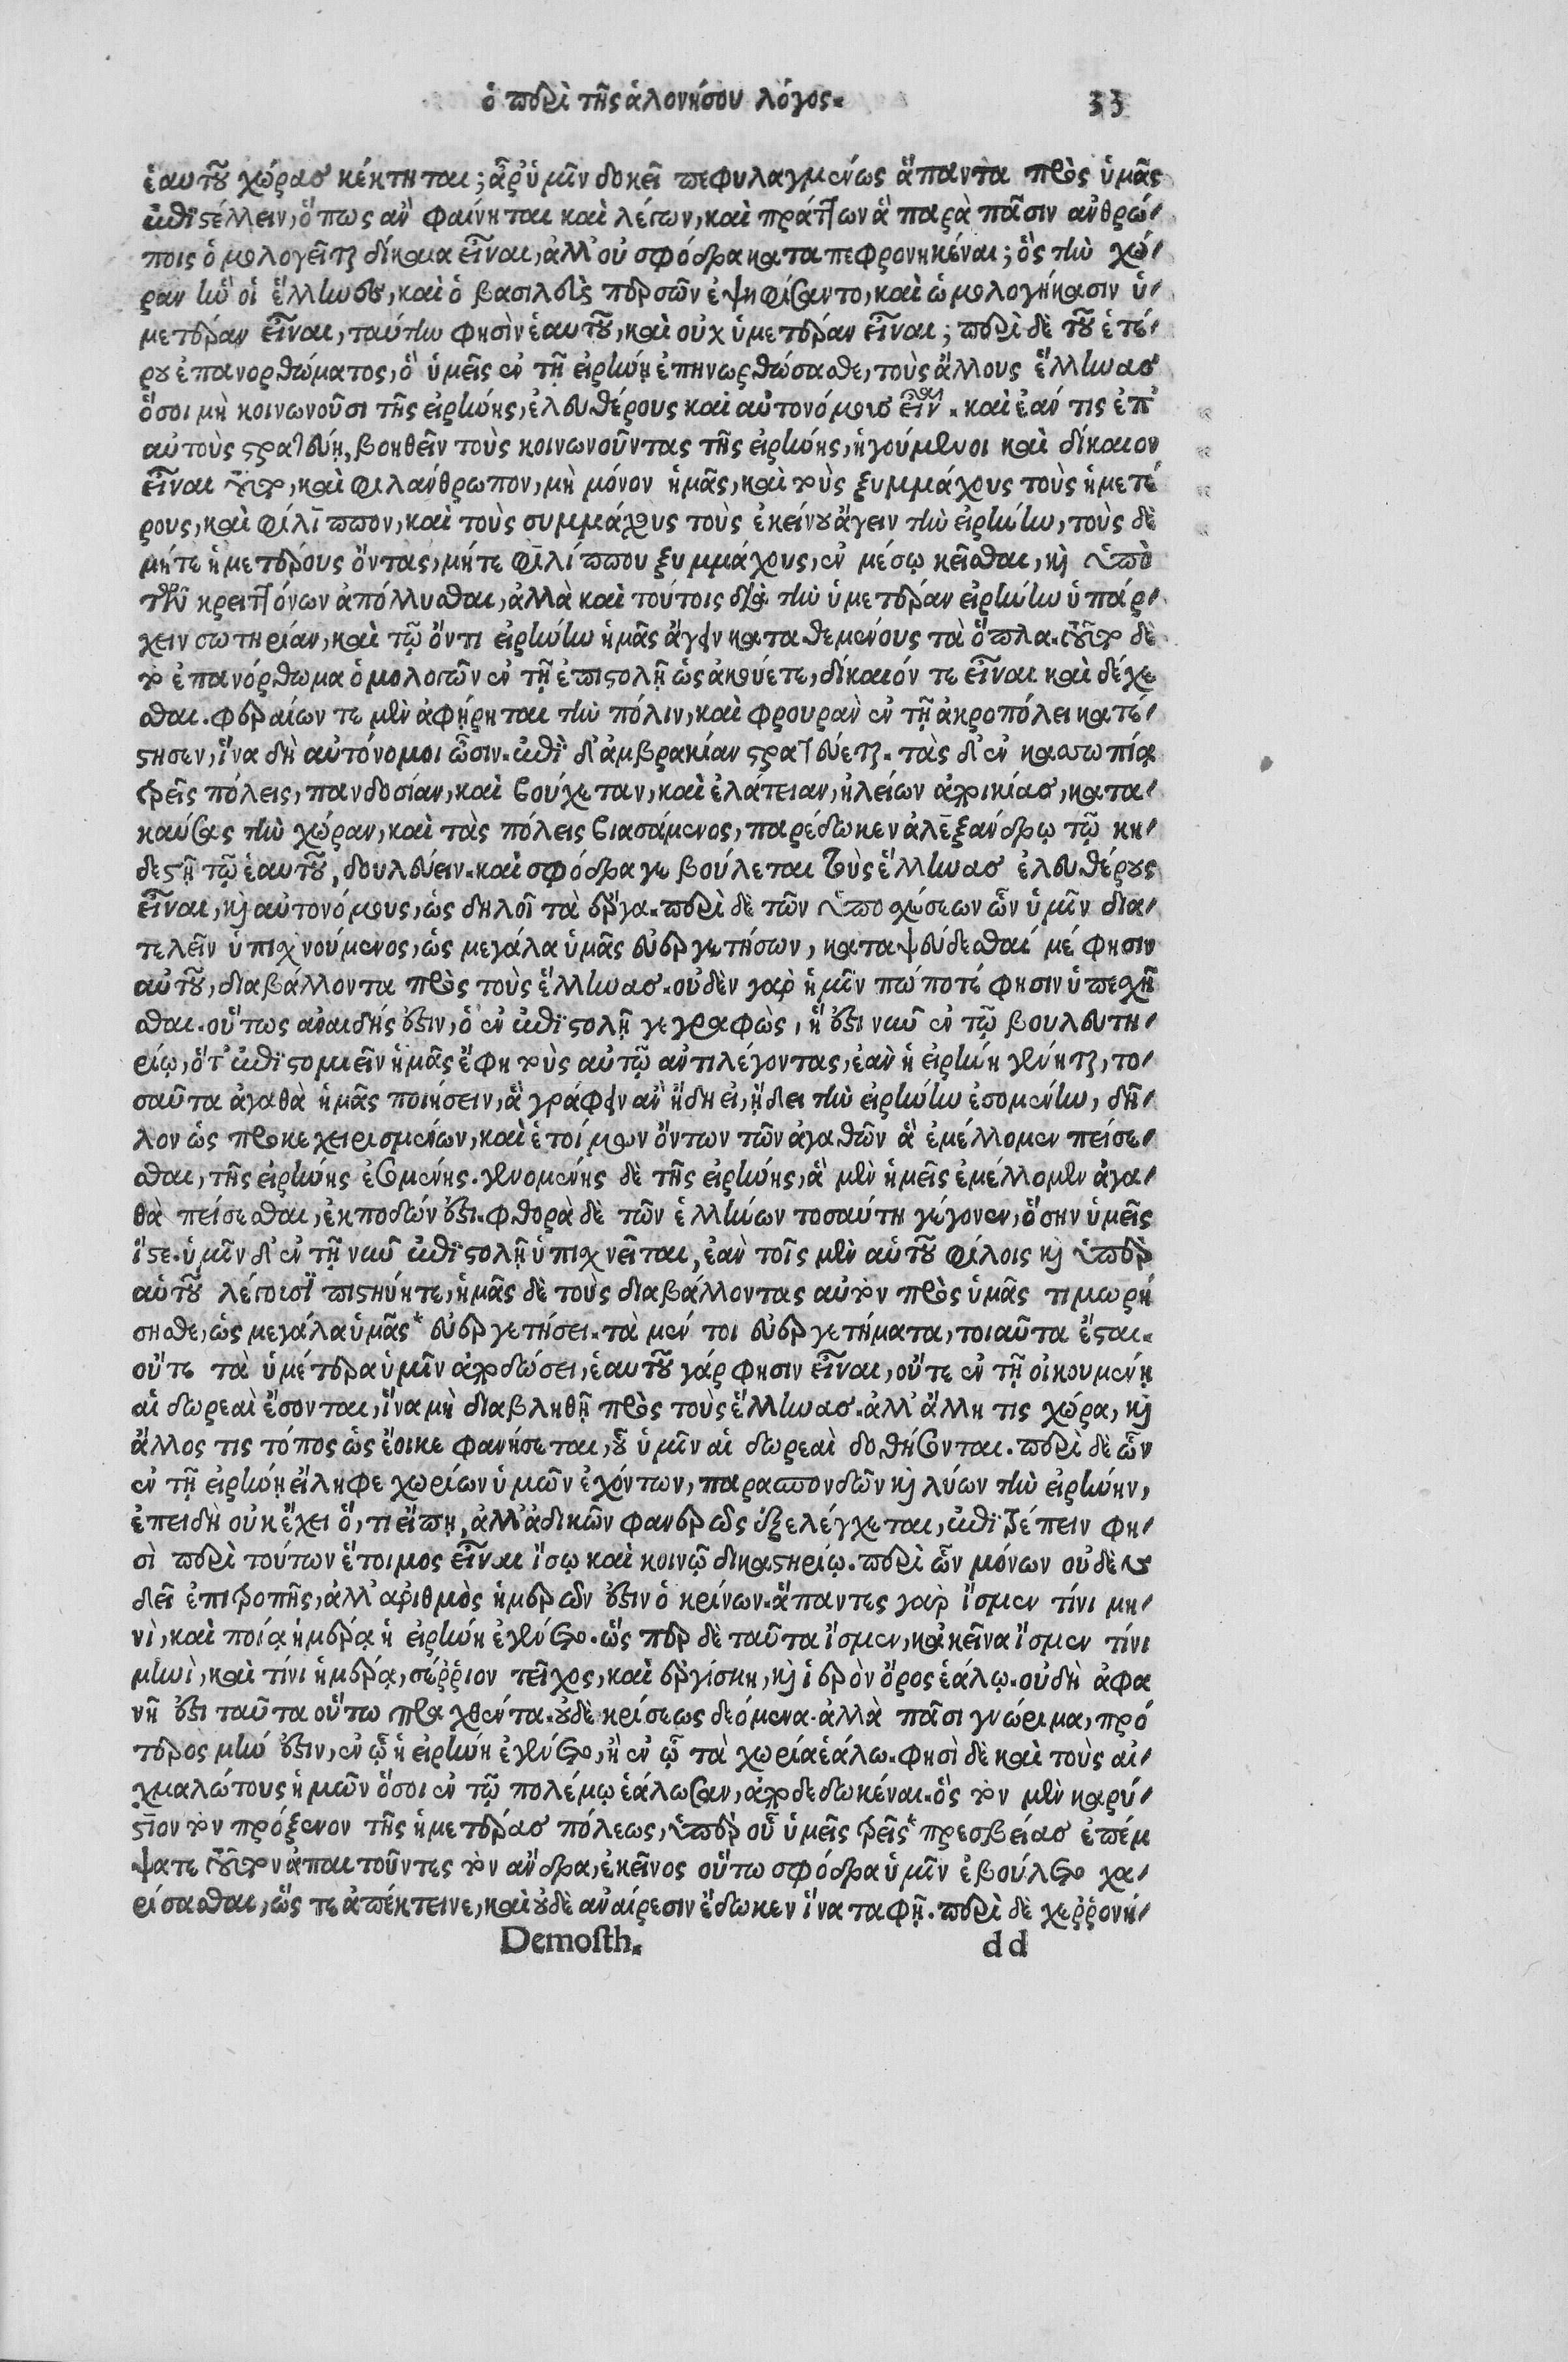 ὁ περὶ τῆς ἁλονήσου λόγος.
33
ἑαυτοῦ χώρας κέκτηται; ἆρ' ὑμῖν δοκεῖ πεφυλαγμένως ἅπαντα πρὸς ὑμᾶς
ἐπιστέλλειν, ὅπως ἂν φαίνηται καὶ λέγων, καὶ πράττων ἃ παρὰ πᾶσιν ἀνθρώ-
ποις ὁμολογεῖται δίκαια εἶναι, ἀλλ' οὐ σφόδρα καταπεφρονηκέναι; ὃς τὴν χώ-
ραν ἣν οἱ ἕλληνες, καὶ ὁ βασιλεὺς περσῶν ἐψηφίσαντο, καὶ ὡμολογήκασιν ὑ-
μετέραν εἶναι, ταύτην φησὶν ἑαυτοῦ, καὶ οὐχ ὑμετέραν εἶναι; περὶ δὲ τοῦ ἑτέ-
ρου ἐπανορθώματος, ὃ ὑμεῖς ἐν τῇ εἰρήνῃ ἐπηνωρθώσασθε, τοὺς ἄλλους ἕλληνας
ὅσοι μὴ κοινωνοῦσι τῆς εἰρήνης, ἐλευθέρους καὶ αὐτονόμους εἶναι. καὶ ἐάν τις ἐπ'
αὐτοὺς στρατεύῃ, βοηθεῖν τοὺς κοινωνοῦντας τῆς εἰρήνης, ἡγούμενοι καὶ δίκαιον
εἶναι τοῦτο, καὶ φιλάνθρωπον, μὴ μόνον ἡμᾶς, καὶ τοὺς ξυμμάχους τοὺς ἡμετέ
ρους, καὶ φίλιππον, καὶ τοὺς συμμάχους τοὺς ἐκείνου ἄγειν τὴν εἰρήνην, τοὺς δὲ
μήτε ἡμετέρους ὄντας, μήτε φιλίππου ξυμμάχους, ἐν μέσῳ κεῖσθαι, καὶ ὑπὸ
τῶν κρειττόνων ἀπόλλυσθαι, ἀλλὰ καὶ τούτοις διὰ τὴν ὑμετέραν εἰρήνην ὑπάρ-
χειν σωτηρίαν, καὶ τῷ ὄντι εἰρήνην ἡμᾶς ἄγειν καταθεμένους τὰ ὅπλα. τοῦτο δὲ
τὸ ἐπανόρθωμα ὁμολογῶν ἐν τῇ ἐπιστολῇ ὡς ἀκούετε, δίκαιόν τε εἶναι καὶ δέχε
σθαι. φεραίων τε μὲν ἀφῄρηται τὴν πόλιν, καὶ φρουρὰν ἐν τῇ ἀκροπόλει κατέ-
στησεν, ἵνα δὴ αὐτόνομοι ὦσιν. ἐπὶ δ' ἀμβρακίαν στρατεύεται. τὰς δ' ἐν κασωπίᾳ
τρεῖς πόλεις, πανδοσίαν, καὶ βούχεταν, καὶ ἐλάτειαν, ἠλείων ἀποικίας, κατα-
καύσας τὴν χώραν, καὶ τὰς πόλεις βιασάμενος, παρέδωκεν ἀλεξάνδρῳ τῷ κη-
δεστῇ τῷ ἑαυτοῦ, δουλεύειν. καὶ σφόδρα γε βούλεται τοὺς ἕλληνας ἐλευθέρους
εἶναι, καὶ αὐτονόμους, ὡς δηλοῖ τὰ ἔργα. περὶ δὲ τῶν ὑποσχέσεων ὧν ὑμῖν δια-
τελεῖν ὑπισχνούμενος, ὡς μεγάλα ὑμᾶς εὐεργετήσων, καταψεύδεσθαί μέ φησιν
αὐτοῦ, διαβάλλοντα πρὸς τοὺς ἕλληνας. οὐδὲν γὰρ ἡμῖν πώποτέ φησιν ὑπεσχῆ
σθαι. οὕτως ἀναιδής ἐστιν, ὁ ἐν ἐπιστολῇ γεγραφὼς, ἥ ἐστι νῦν ἐν τῷ βουλευτη-
ρίῳ, ὅτ' ἐπιστομιεῖν ἡμᾶς ἔφη τοὺς αὐτῷ ἀντιλέγοντας, ἐὰν ἡ εἰρήνη γένηται, το-
σαῦτα ἀγαθὰ ἡμᾶς ποιήσειν, ἃ γράφειν ἂν ἤδη εἰ, ᾔδει τὴν εἰρήνην ἐσομένην, δῆ-
λον ὡς προκεχειρισμένων, καὶ ἑτοίμων ὄντων τῶν ἀγαθῶν ἃ ἐμέλλομεν πείσε-
σθαι, τῆς εἰρήνης ἐσομένης. γενομένης δὲ τῆς εἰρήνης, ἃ μὲν ἡμεῖς ἐμέλλομεν ἀγα-
θὰ πείσεσθαι, ἐκποδών ἐστι. φθορὰ δὲ τῶν ἑλλήνων τοσαύτη γέγονεν, ὅσην ὑμεῖς
ἴστε. ὑμῖν δ' ἐν τῇ νῦν ἐπιστολῇ ὑπισχνεῖται, ἐὰν τοῖς μὲν αὑτοῦ φίλοις καὶ ὑπὲρ
αὑτοῦ λέγουσι πιστεύητε, ἡμᾶς δὲ τοὺς διαβάλλοντας αὐτὸν πρὸς ὑμᾶς τιμωρή
σησθε, ὡς μεγάλα ὑμᾶς* εὐεργετήσει. τὰ μέν τοι εὐεργετήματα, τοιαῦτα ἔσται.
οὔτε τὰ ὑμέτερα ὑμῖν ἀποδώσει, ἑαυτοῦ γάρ φησιν εἶναι, οὔτε ἐν τῇ οἰκουμένῃ
αἱ δωρεαὶ ἔσονται, ἵνα μὴ διαβληθῇ πρὸς τοὺς ἕλληνας. ἀλλ' ἄλλη τις χώρα, καὶ
ἄλλος τις τόπος ὡς ἔοικε φανήσεται, οὗ ὑμῖν αἱ δωρεαὶ δοθήσονται. περὶ δὲ ὧν
ἐν τῇ εἰρήνῃ εἴληφε χωρίων ὑμῶν ἐχόντων, παρασπονδῶν καὶ λύων τὴν εἰρήνην,
ἐπειδὴ οὐκ ἔχει ὅ, τι εἴπῃ, ἀλλ' ἀδικῶν φανερῶς ἐξελέγχεται, ἐπιτρέπειν φη-
σὶ περὶ τούτων ἕτοιμος εἶναι ἴσῳ καὶ κοινῷ δικαστηρίῳ. περὶ ὧν μόνων οὐδὲν
δεῖ ἐπιτροπῆς, ἀλλ' ἀριθμὸς ἡμερῶν ἐστιν ὁ κρίνων. ἅπαντες γὰρ ἴσμεν τίνι μη-
νὶ, καὶ ποίᾳ ἡμέρᾳ ἡ εἰρήνη ἐγένετο. ὥς περ δὲ ταῦτα ἴσμεν, κἀκεῖνα ἴσμεν τίνι
μηνὶ, καὶ τίνι ἡμέρᾳ, σέρριον τεῖχος, καὶ ἐργίσκη, καὶ ἱερὸν ὄρος ἑάλω. οὐ δὴ ἀφα
νῆ ἐστι ταῦτα οὕτω πραχθέντα. οὐδὲ κρίσεως δεόμενα. ἀλλὰ πᾶσι γνώριμα, πρό
τερος μήν ἐστιν, ἐν ᾧ ἡ εἰρήνη ἐγένετο, ἢ ἐν ᾧ τὰ χωρία ἑάλω. φησὶ δὲ καὶ τοὺς αἰ-
χμαλώτους ἡμῶν ὅσοι ἐν τῷ πολέμῳ ἑάλωσαν, ἀποδεδωκέναι. ὃς τὸν μὲν καρύ-
στιον τὸν πρόξενον τῆς ἡμετέρας πόλεως, ὑπὲρ οὗ ὑμεῖς τρεῖς* πρεσβείας ἐπέμ
ψατε τοῦτον ἀπαιτοῦντες τὸν ἄνδρα, ἐκεῖνος οὕτω σφόδρα ὑμῖν ἐβούλετο χα-
ρίσασθαι, ὥς τε ἀπέκτεινε, καὶ οὐδὲ ἀναίρεσιν ἔδωκεν ἵνα ταφῇ. περὶ δὲ χερρονή-
Demosth.
dd